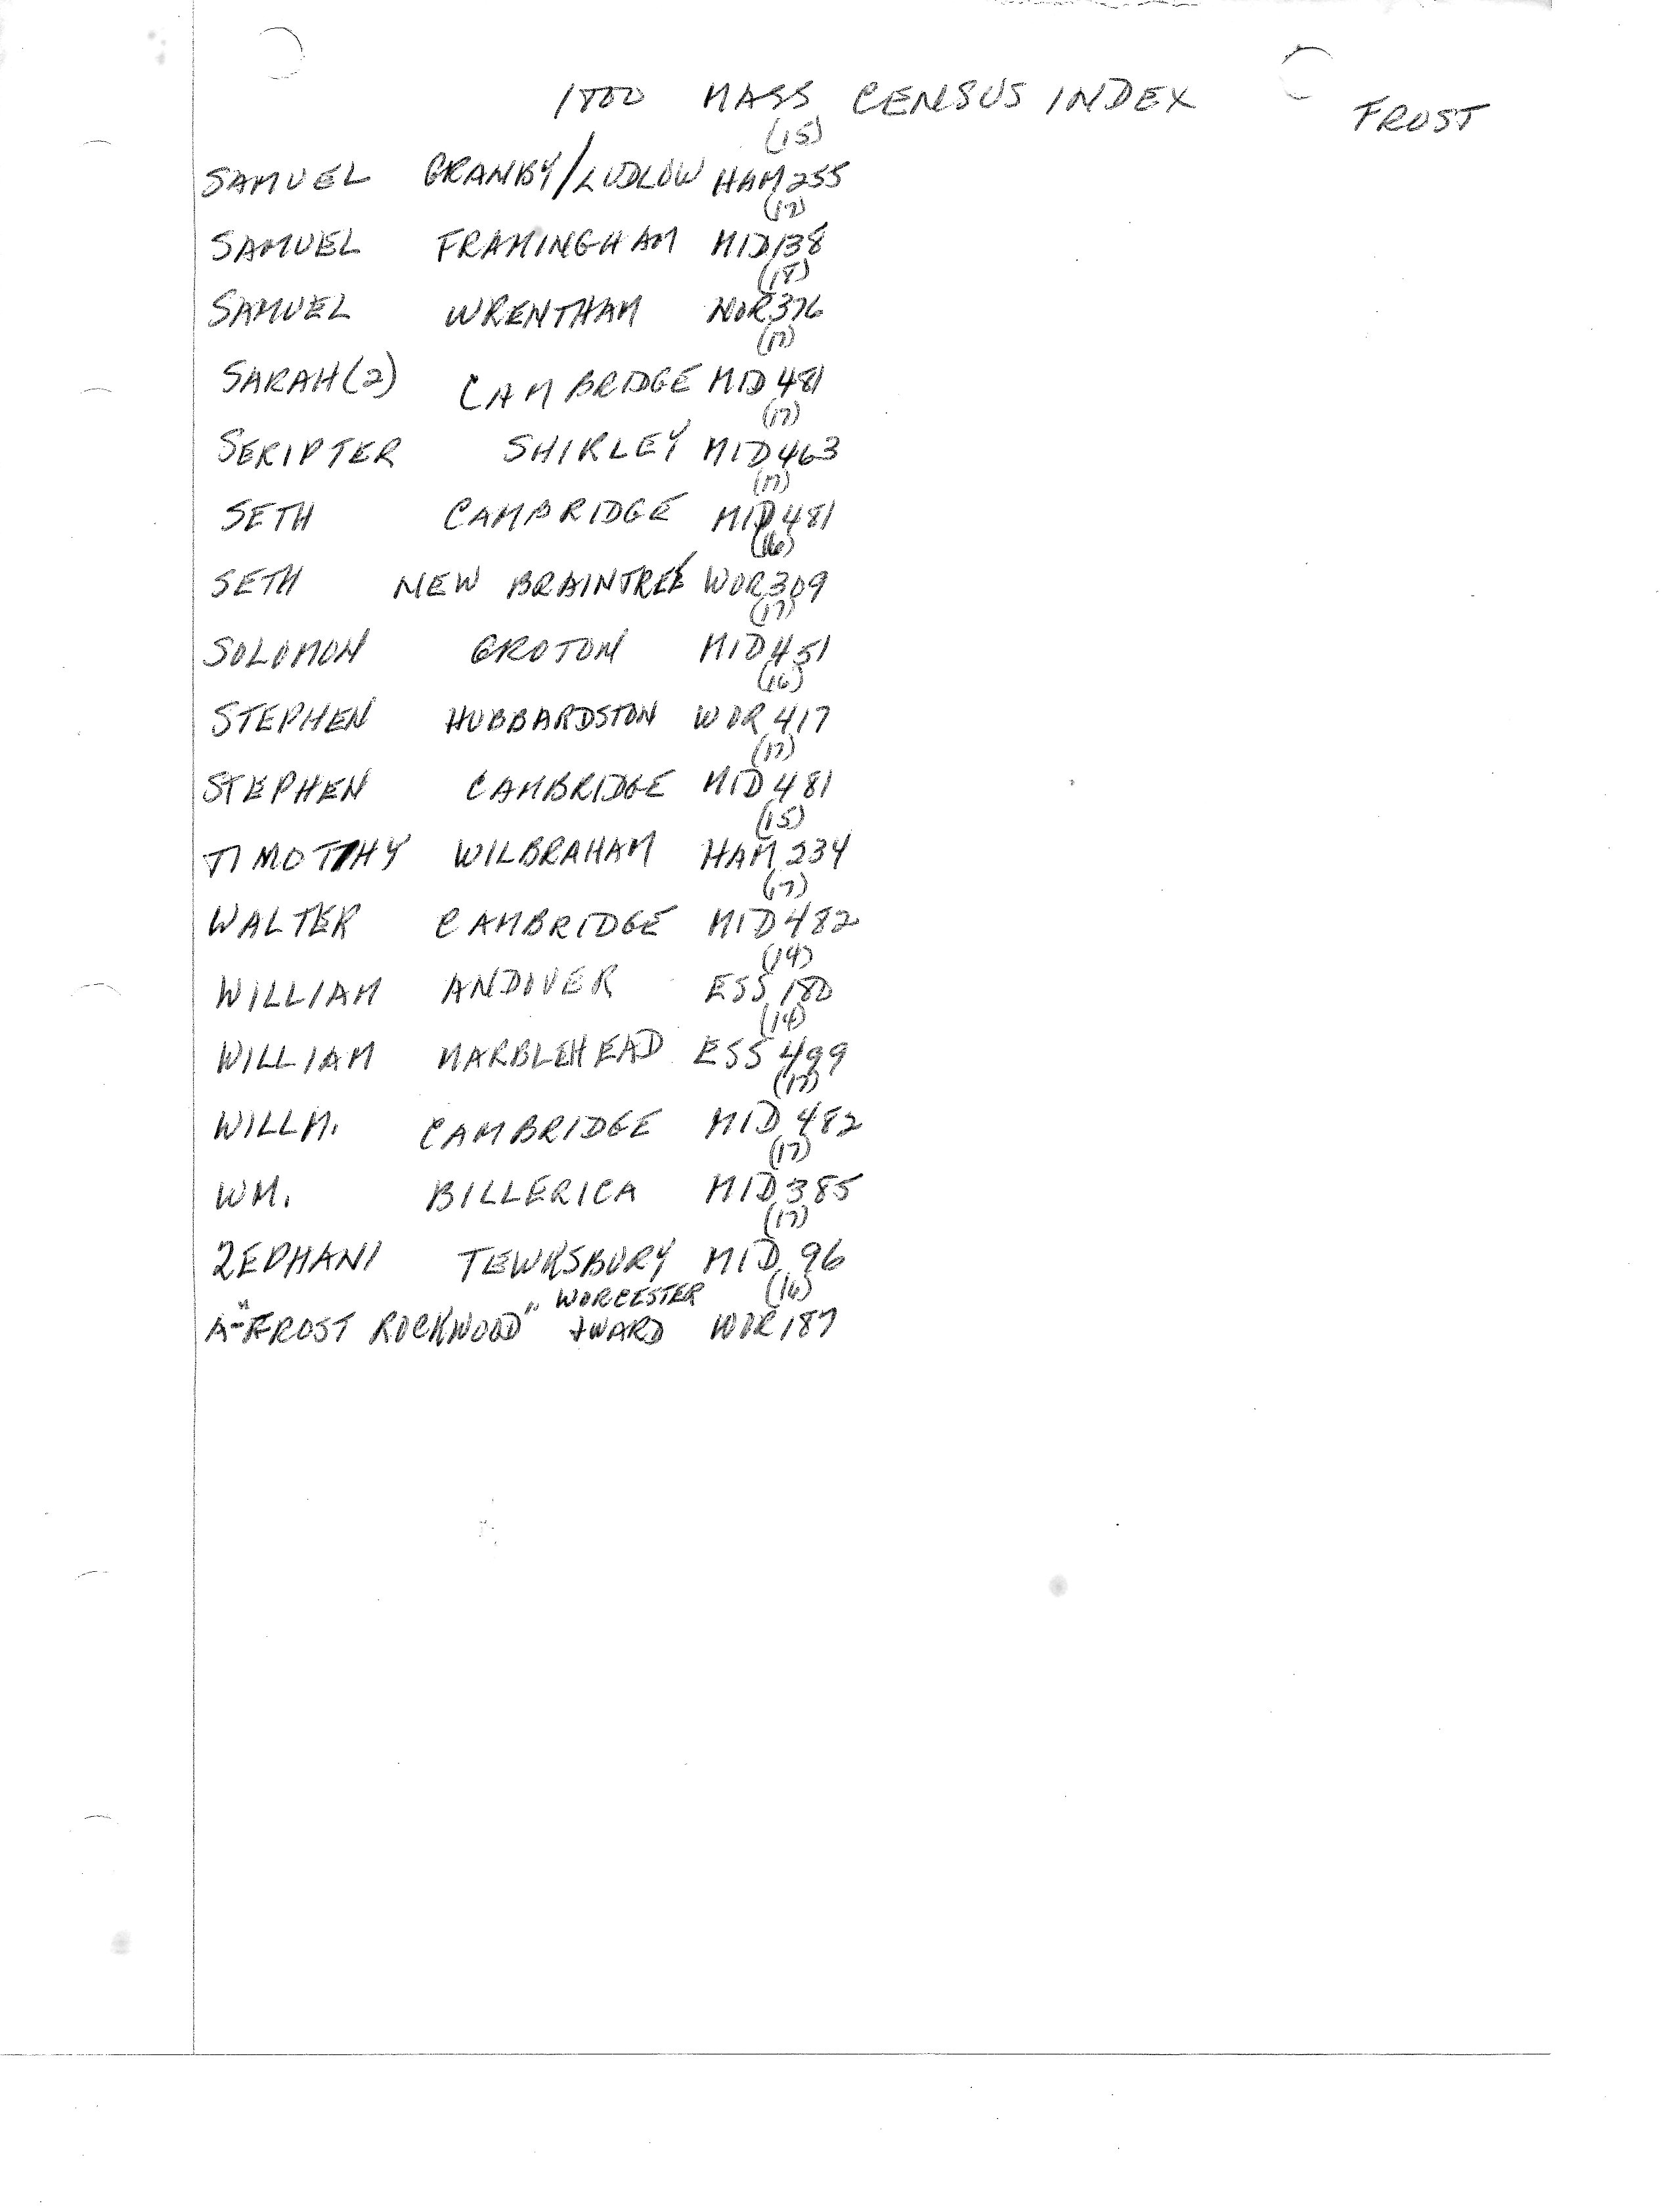 1800 MASS CENSUS INDEX FROST
(15)
SAMUEL GRANBY/LUDLOW HAM 255
(17)
SAMUEL FRAMINGHAM MID 138
(18)
SAMUEL WRENTHAM NOR 376
(17)
SARAH (2) CAMBRIDGE MID 481
(17)
SERIPTER SHIRLEY MID 463
(17)
SETH CAMBRIDGE MID 481
(16)
SETH NEW BRAINTREE WOR 309
(17)
SOLOMON GROTON MID 451
(16)
STEPHEN HUBBARDSTON WOR 417
(17)
STEPHEN CAMBRIDGE MID 481
(15)
TIMOTHY WILBRAHAM HAM 234
(17)
WALTER CAMBRIDGE MID 482
(14)
WILLIAM ANDOVER ESS 180
(14)
WILLIAM MARBLEHEAD ESS 499
(17)
WILLM. CAMBRIDGE MID 482
(17)
WM. BILLERICA MID 385
(17)
ZEPHANI TEWKSBURY MID 96
WORCESTER (16)
A-"FROST ROCKWOOD" +WARD WOR 187